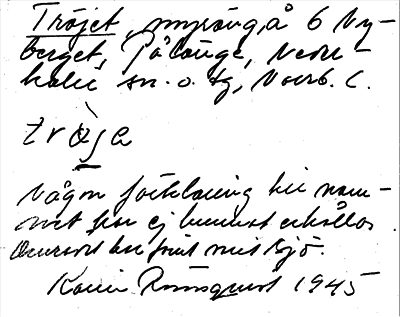 Tröjet, myräng, å 6 Ny-
berget, Pålänge, Neder-
kalix sn. o. tg, Norrb. l.
tròja
Någon förklaring till nam-
net har ej kunnat erhållas
Oavsett har funnits mit sjö.
Karin Rönnquist 1945